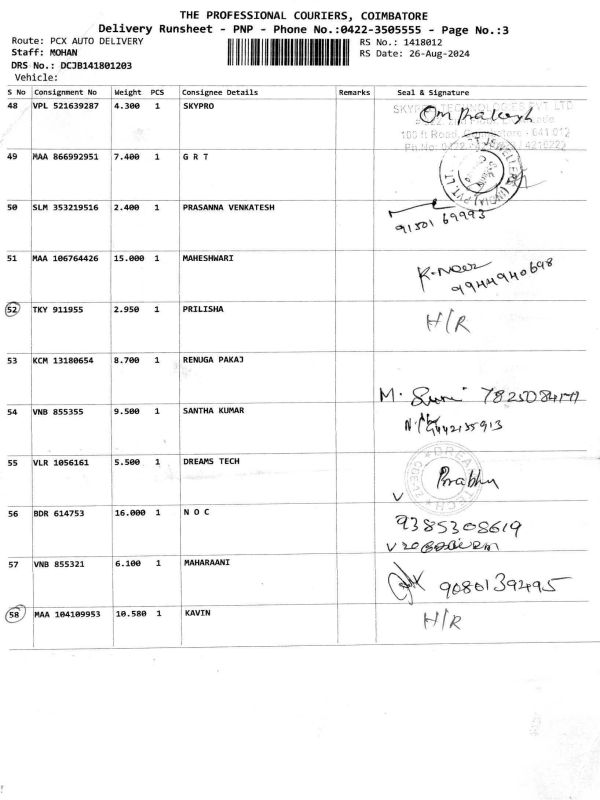 THE PROFESSIONAL COURIERS, COIMBATORE
Delivery Runsheet - PNP - Phone No.:0422-3505555 - Page No.:3
Route: PCX AUTO DELIVERY
RS No.: 1418012
Staff: MOHAN
RS Date: 26-Aug-2024
DRS No.: DCJB141801203
Vehicle:
S No Consignment No Weight PCS Consignee Details Remarks Seal & Signature
48 VPL 521639287 4.300 1 SKYPRO
Om Prakash
100 ft Road, Coimbatore - 641 012
49 MAA 866992951 7.400 1 G R T
JEWELLERS (INDIA) PVT. LT
50 SLM 353219516 2.400 1 PRASANNA VENKATESH
91501 69993
51 MAA 106764426 15.000 1 MAHESHWARI
9944940698
52 TKY 911955 2.950 1 PRILISHA
H/R
53 KCM 13180654 8.700 1 RENUGA PAKAJ
M.
54 VNB 855355 9.500 1 SANTHA KUMAR
9442155913
55 VLR 1056161 5.500 1 DREAMS TECH
Prabhu
56 BDR 614753 16.000 1 N O C
9385308619
57 VNB 855321 6.100 1 MAHARAANI
9080139495
58 MAA 104109953 10.580 1 KAVIN
H/R